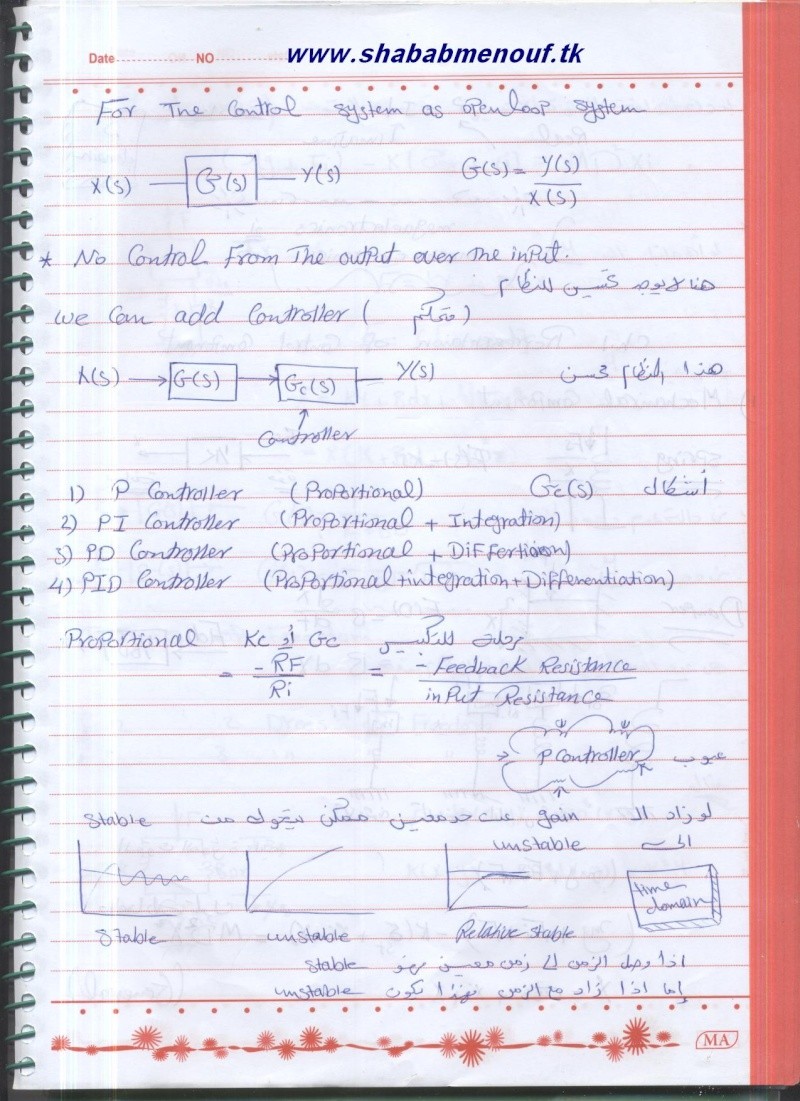 Date NO www.shababmenouf.tk
For The Control system as openloop system
X(s) G(s) Y(s) G(s) = Y(s) / X(s)
* No Control From The output over The input.
هنا لا يوجد تحسين للنظام
we can add Controller ( متحكم )
X(s) G(s) Gc(s) Y(s) هذا النظام محسن
Controller
1) P Controller (Proportional) Gc(s) أشكال
2) PI Controller (Proportional + Integration)
3) PD Controller (Proportional +
4) PID Controller (Proportional + integration + Differentiation)
Proportional Kc أو Gc للتكبير
= -RF / Ri = - Feedback Resistance / input Resistance
P Controller عيوب
لو زاد الـ gain عن حد معين ممكن يتحول من stable
الى unstable
time
domain
Stable unstable Relative stable
اذا وصل الزمن الى زمن معين فهو stable
إما اذا زاد مع الزمن فهذا يكون unstable
MA